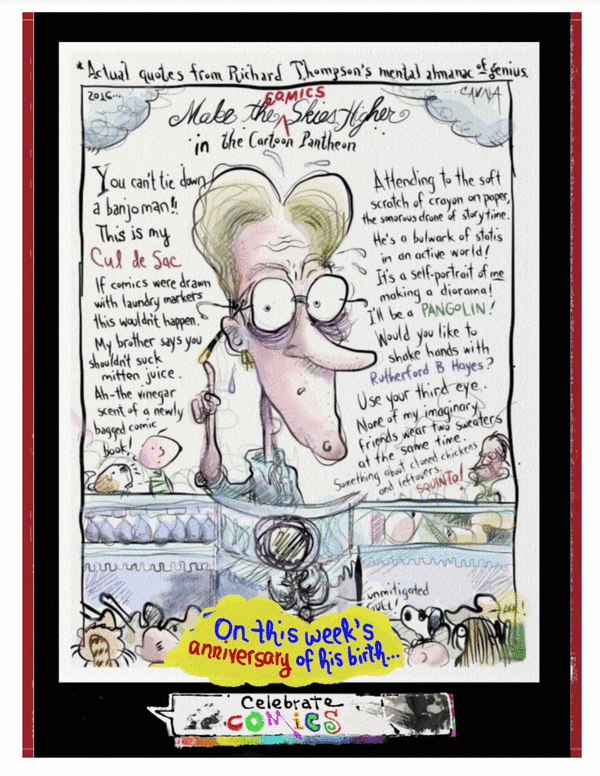 *Actual quotes from Richard Thompson's mental almanac of genius.
2016...
CAVNA
COMICS
Make the ^ Skies Higher
in the Cartoon Pantheon
You can't tie down
a banjo man!!
This is my
Cul de Sac
If comics were drawn
with laundry markers
this wouldn't happen.
My brother says you
shouldn't suck
mitten juice.
Ah-the vinegar
scent of a newly
bagged comic
book!
Attending to the soft
scratch of crayon on paper,
the sonorous drone of storytime.
He's a bulwark of statis
in an active world!
It's a self-portrait of me
making a diorama!
I'll be a PANGOLIN!
Would you like to
shake hands with
Rutherford B Hayes?
Use your third eye.
None of my imaginary
friends wear two sweaters
at the same time.
Something about cloned chickens
and leftovers.
SQUINTO!
unmitigated
On this week's
anniversary of his birth...
Celebrate
COMICS